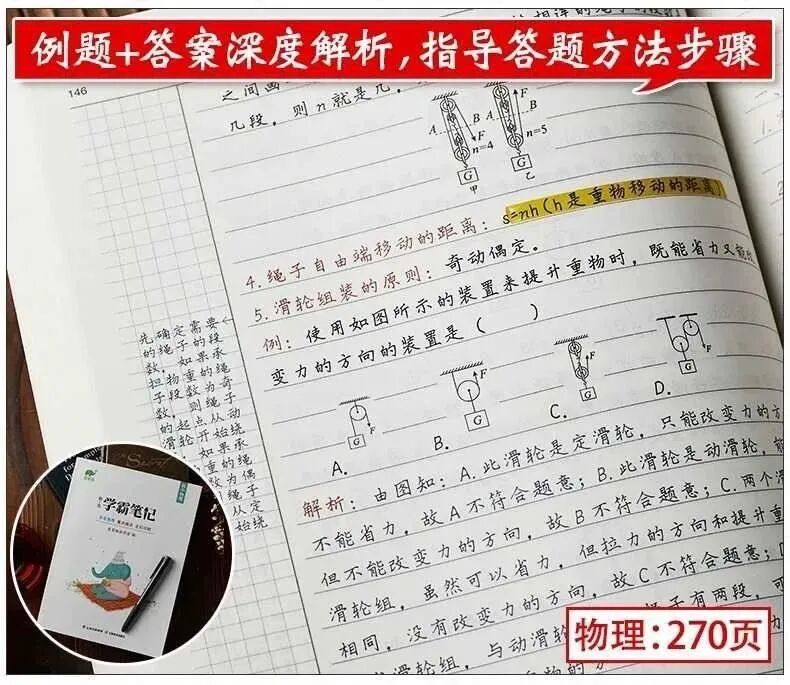 例题+答案深度解析，指导答题方法步骤
146
几段，则n就是几，
A
B
F
n=4
G
甲
A
B
F
n=5
G
乙
4. 绳子自由端移动的距离：s=nh(h是重物移动的距离)
5. 滑轮组装的原则：奇动偶定。
例：使用如图所示的装置来提升重物时，既能省力又能
变力的方向的装置是（ ）
A.
G
F
B.
G
F
C.
G
F
D.
G
F
先确定需要
的绳子的段
数，如果承
担物重的绳
子段数为奇
数，则绳子
的起点从动
滑轮开始绕
如果承
重的绳
数为偶
绳子
从定
始绕
解析：由图知：A.此滑轮是定滑轮，只能改变力的方
不能省力，故A不符合题意；B.此滑轮是动滑轮，能
但不能改变力的方向，故B不符合题意；C.两个滑
滑轮组，虽然可以省力，但拉力的方向和提升重
相同，没有改变力的方向，故C不符合题意；
子有两段，可
滑轮组，与动滑轮
力的方
学霸笔记
物理：270页